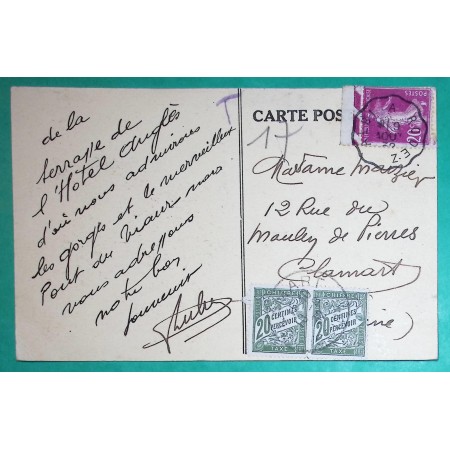 de la
terrasse de
l'Hôtel Anglès
d'où nous admirons
les gorges et le merveilleux
Pont du Viaur nous
vous adressons
notre bon
souvenir
T
17
CARTE POS
POSTES
Madame
12 Rue du
de Pierres
Clamart
ine)
A CHIFFRE
20
CENTIMES
A
PERCEVOIR
TAXE
A CHIFFRE
20
CENTIMES
A
PERCEVOIR
TAXE